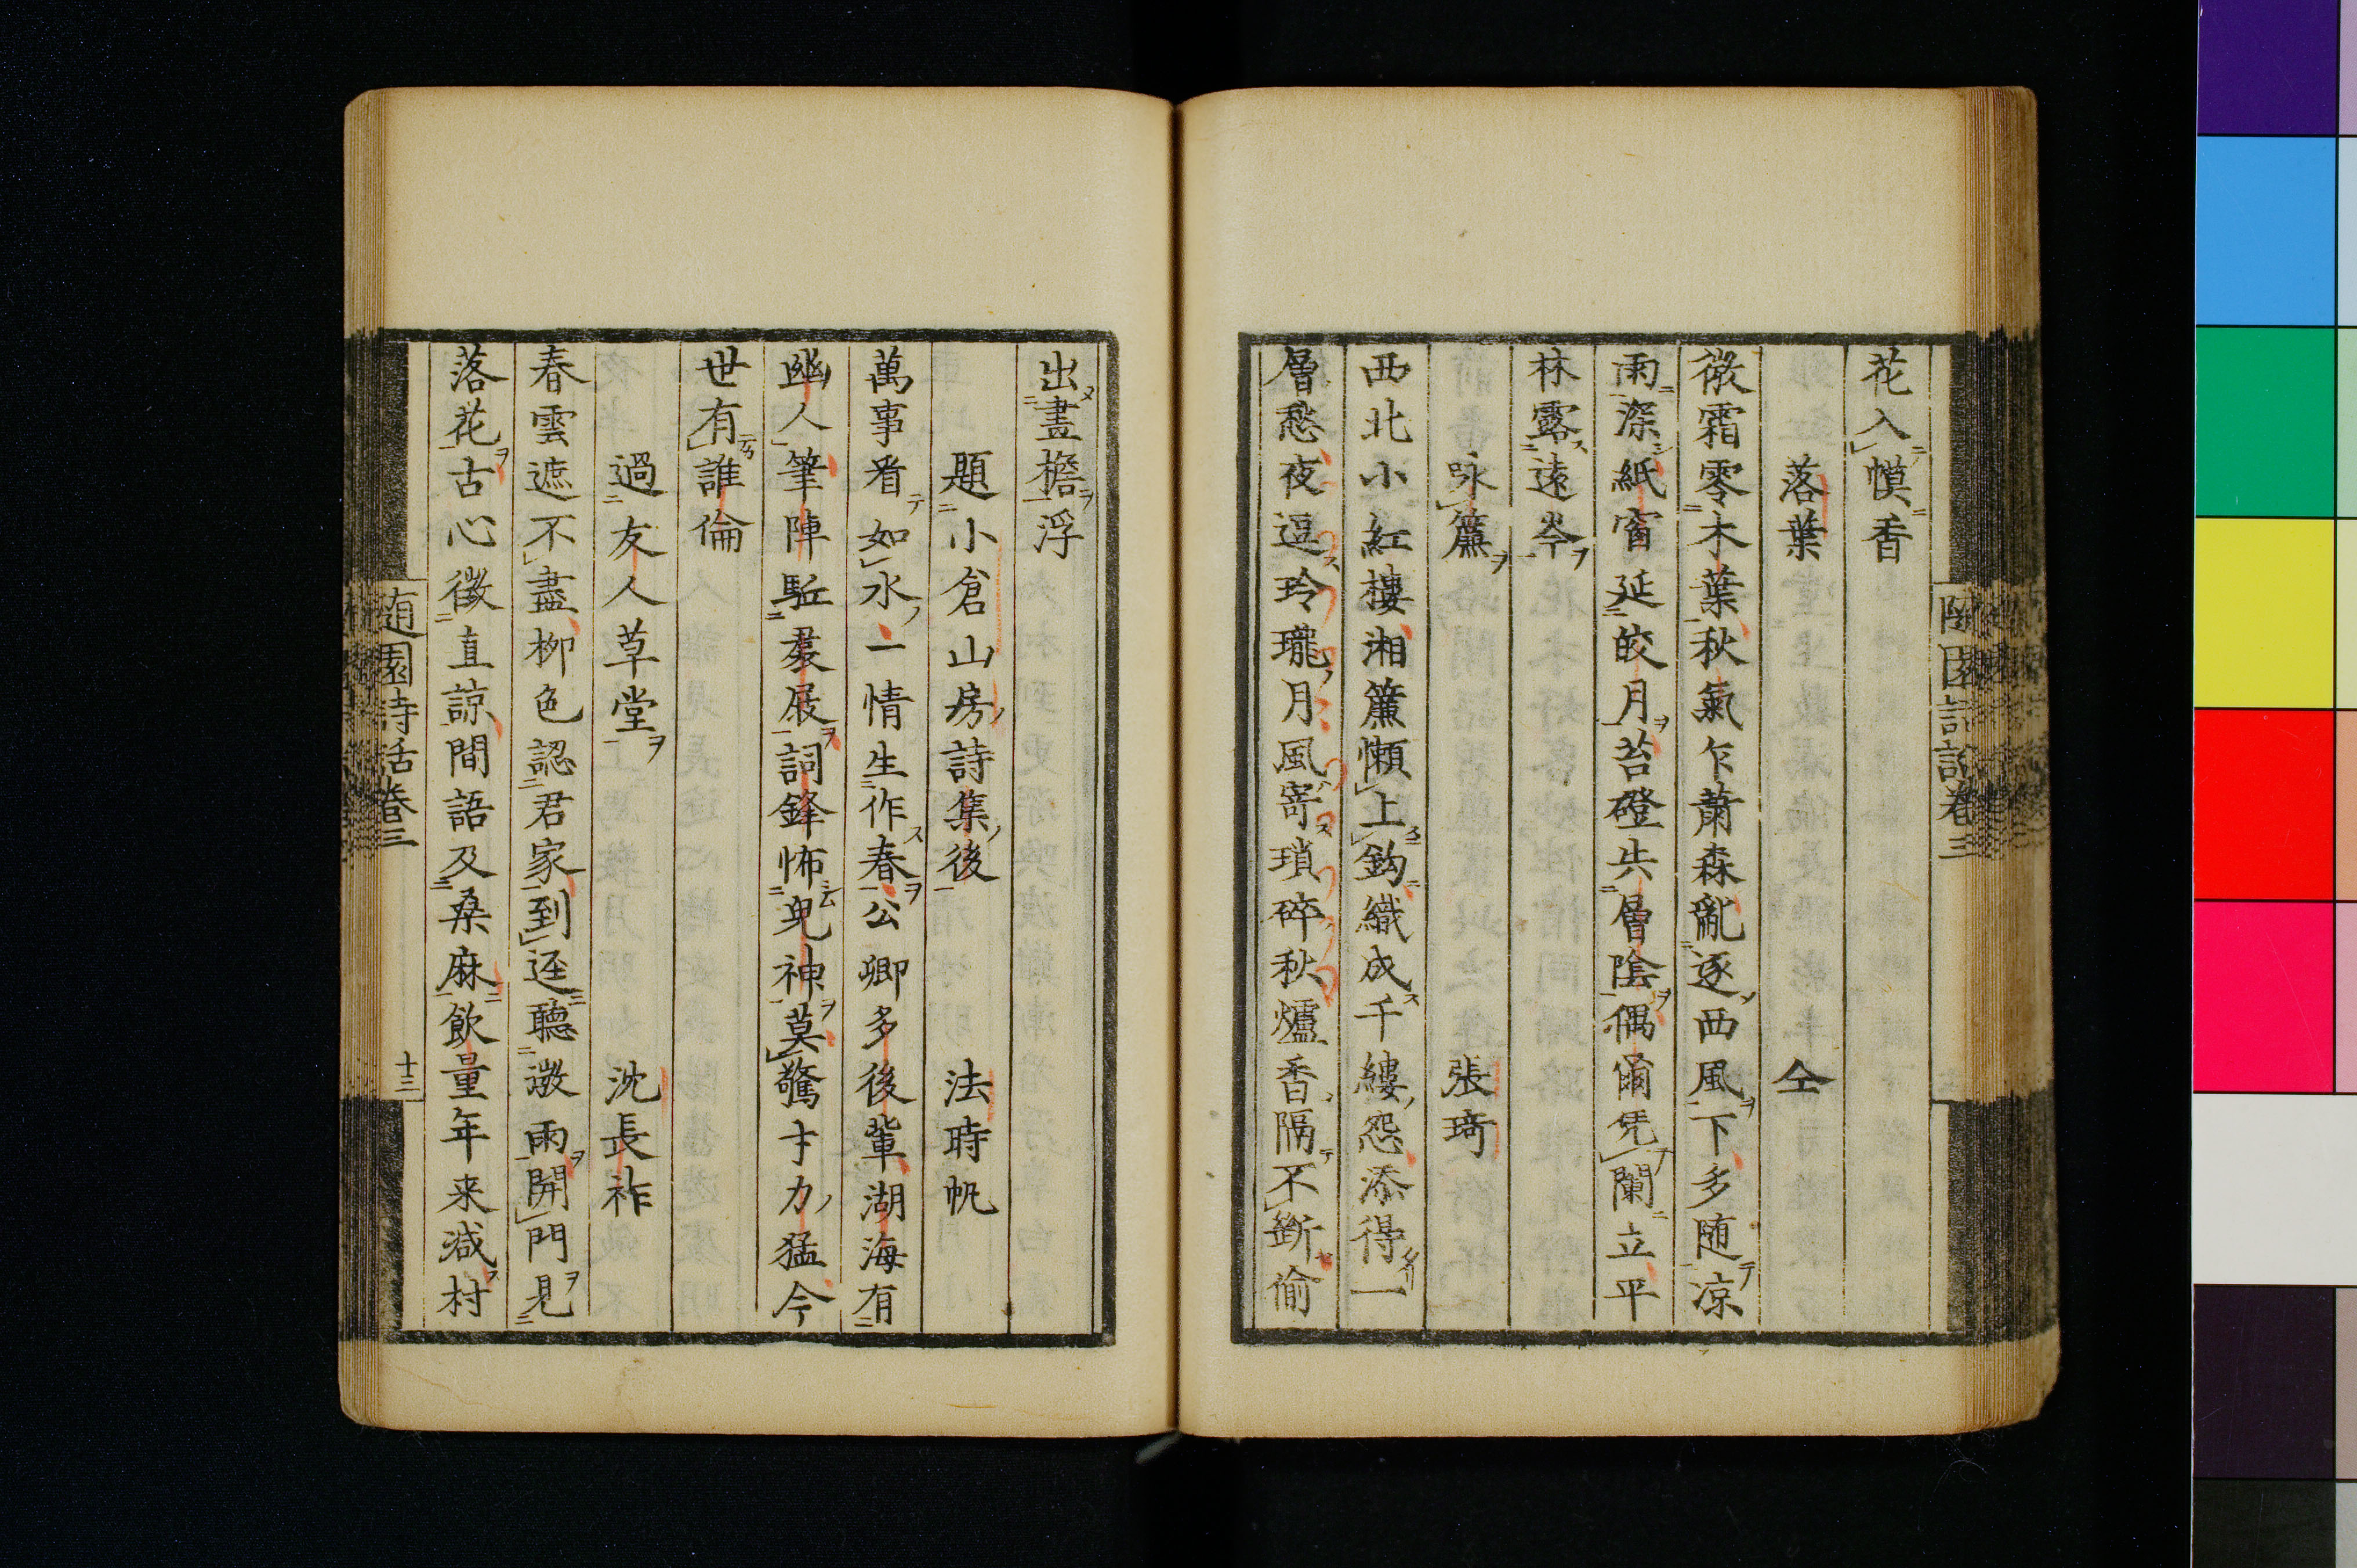 花入幙香
落葉 仝
微霜零木葉秋氣乍蕭森亂逐西風下多随凉
雨深紙窗延皎月苔磴失層陰偶爾凭闌立平
林露遠岑
咏簾 張琦
西北小紅樓湘簾懶上鈎織成千縷怨添得一
層愁夜逗玲瓏月風寄瑣碎秋爐香隔不斷偷
出畫檐浮
題小倉山房詩集後 法時帆
萬事看如水一情生作春公卿多後輩湖海有
幽人筆陣駈羣屐詞鋒怖鬼神莫驚才力猛今
世有誰倫
過友人草堂 沈長祚
春雲遮不盡柳色認君家到逕聽微雨開門見
落花古心徴直諒間語及桑麻飲量年来減村
随園詩話卷三
十三